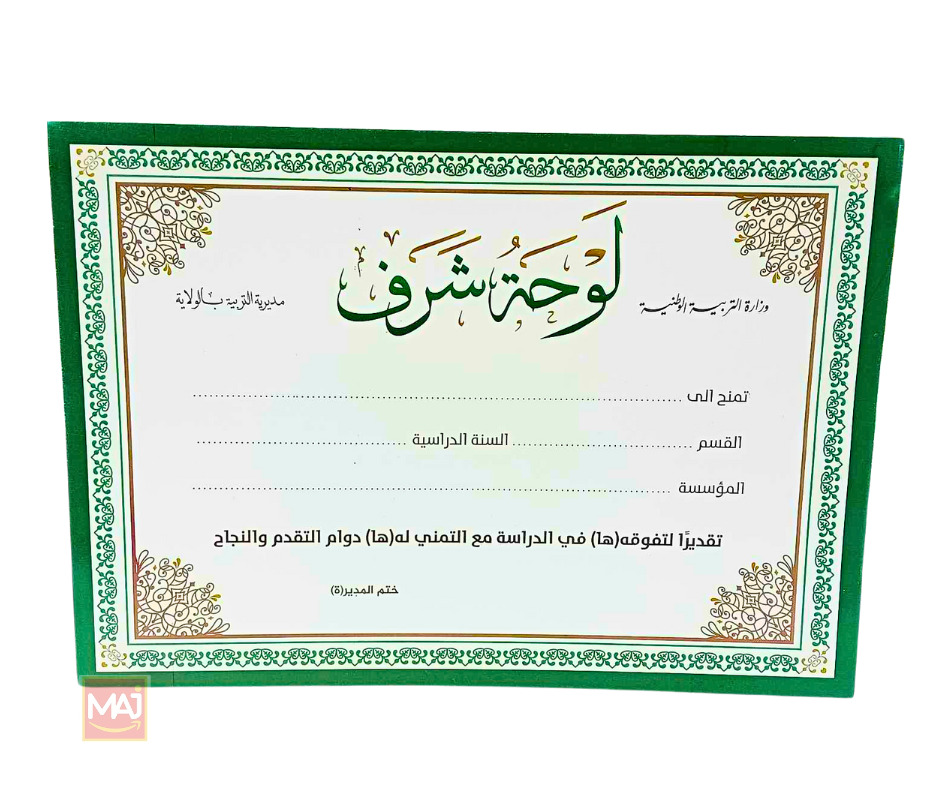 لوحة شرف
وزارة التربية الوطنية
مديرية التربية بالولاية
تمنح الى ........................................
القسم .................... السنة الدراسية ....................
المؤسسة ........................................
تقديرًا لتفوقه(ها) في الدراسة مع التمني له(ها) دوام التقدم والنجاح
ختم المدير(ة)
MAJ